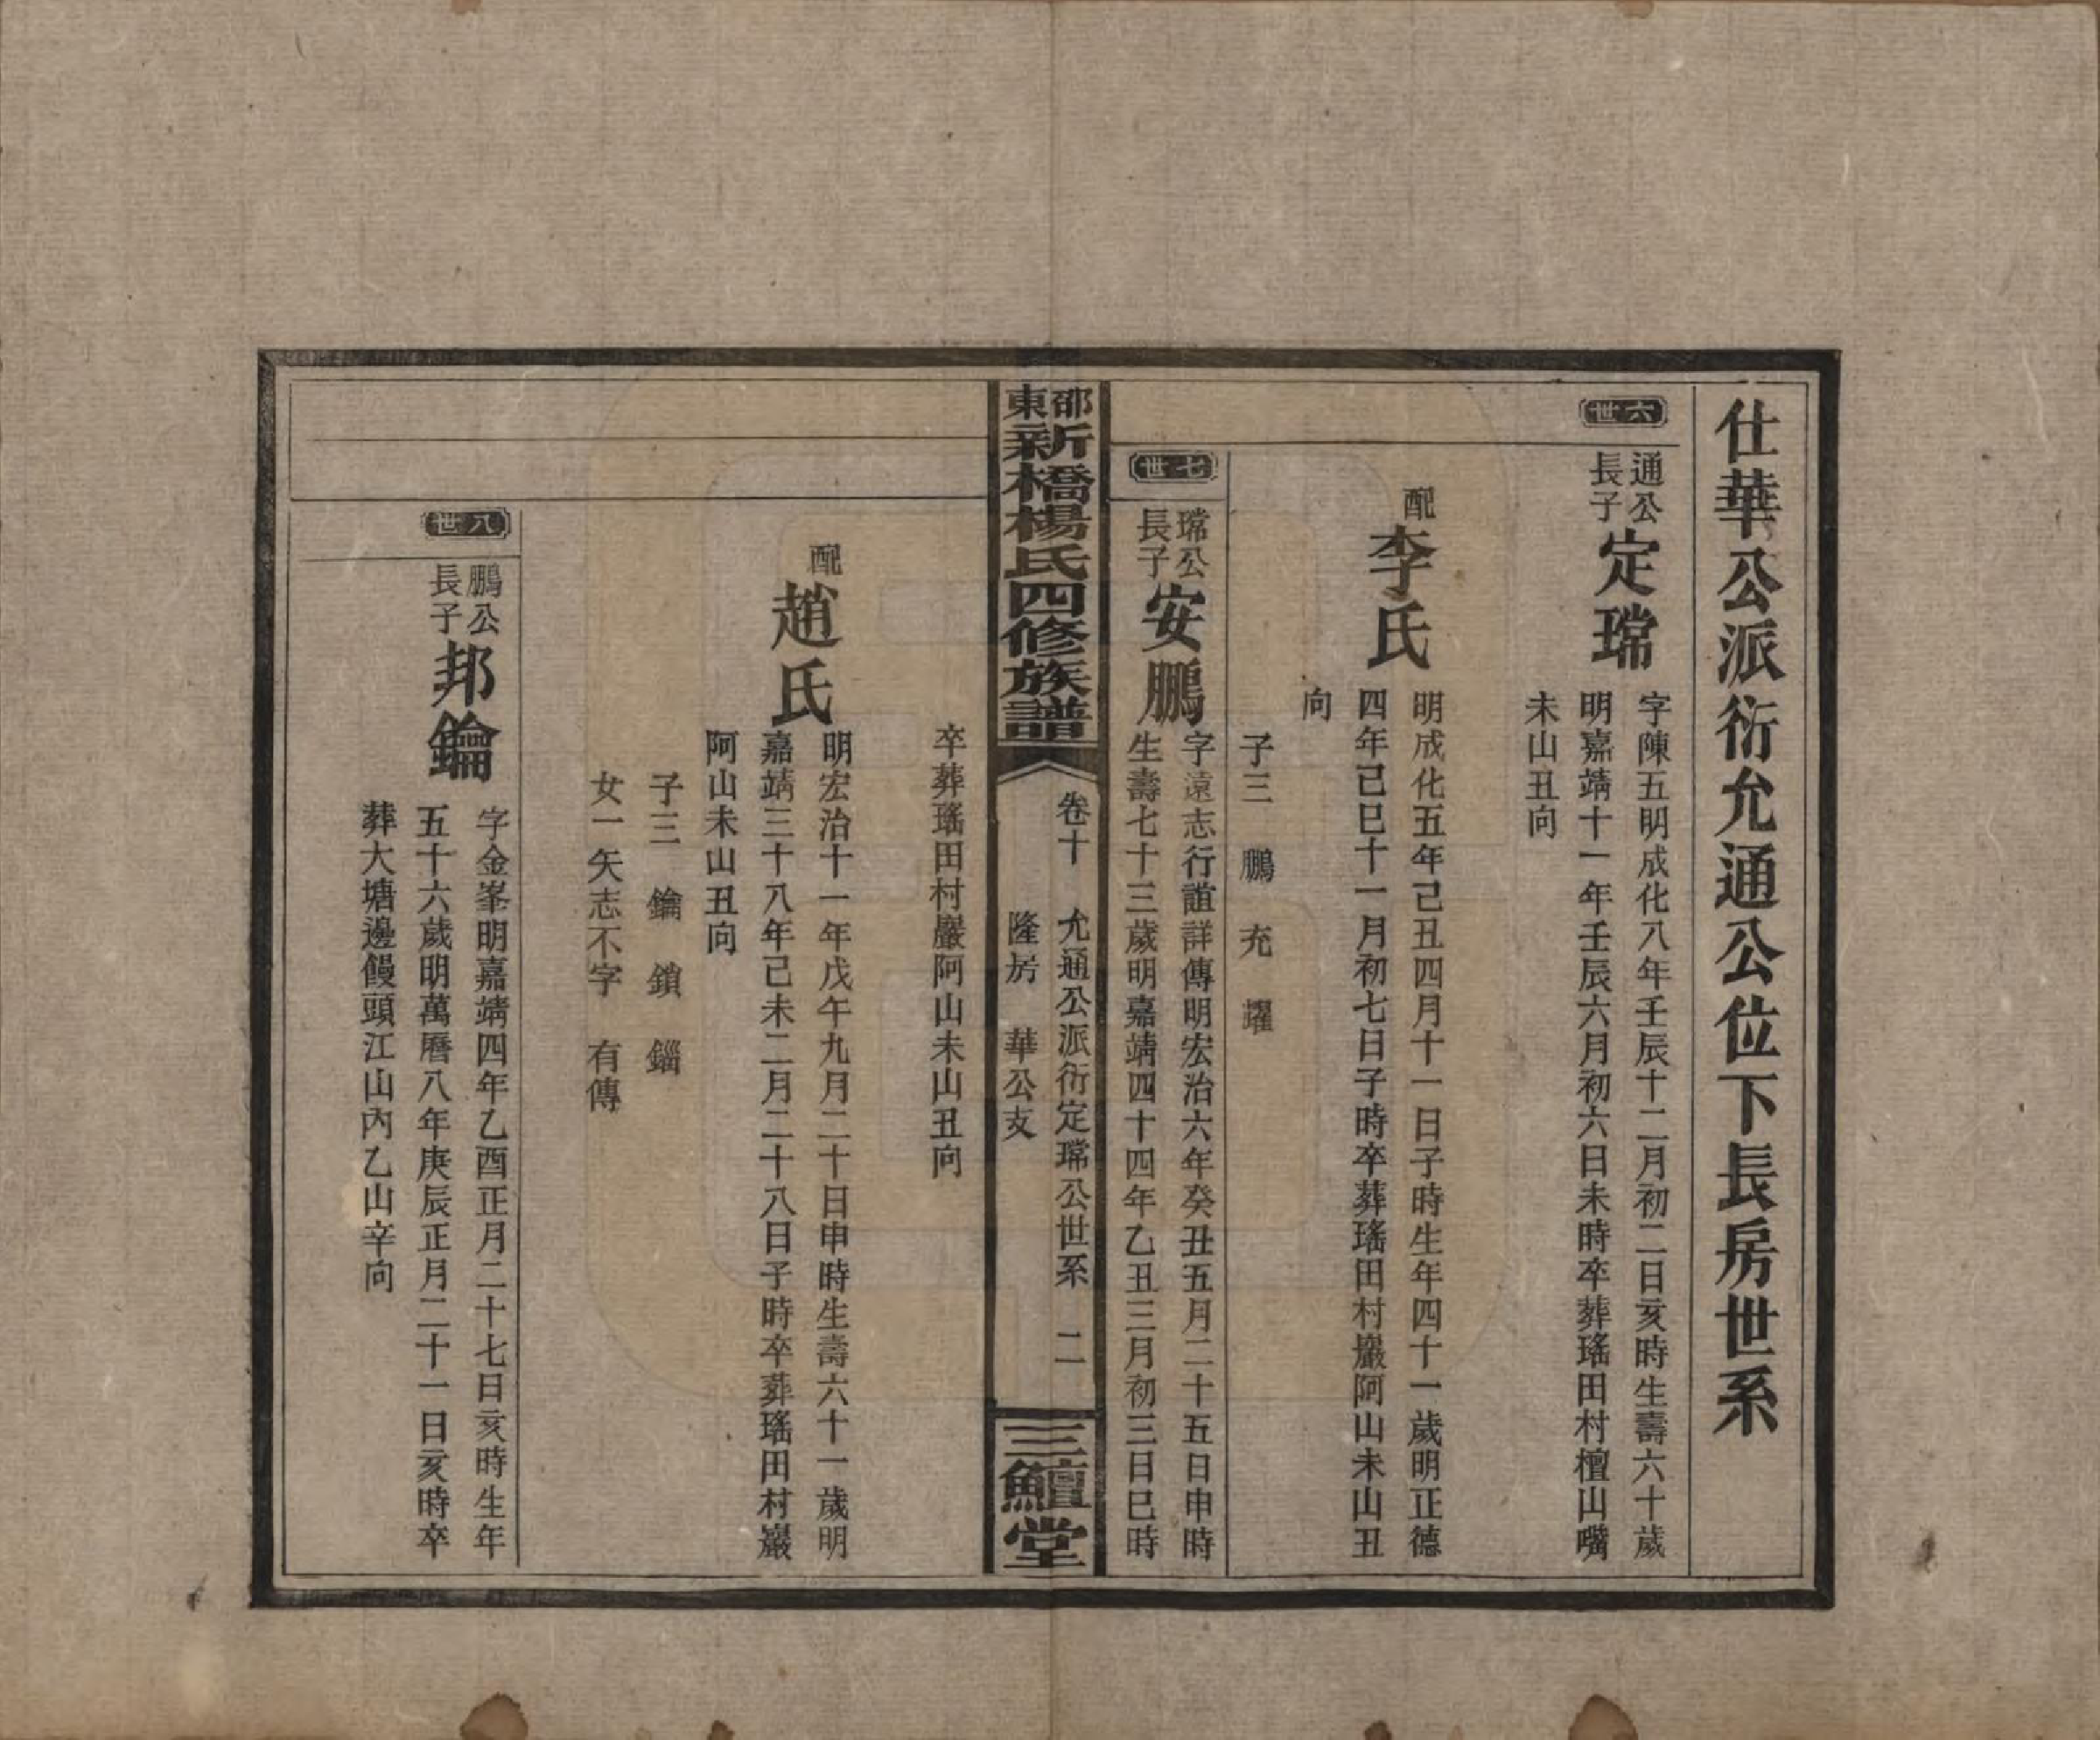 仕華公派衍允通公位下長房世系
六世
通公長子
定瑺
字陳五明成化八年壬辰十二月初二日亥時生壽六十歲
明嘉靖十一年壬辰六月初六日未時卒葬瑤田村檀山嘴
未山丑向
配
李氏
明成化五年己丑四月十一日子時生年四十一歲明正德
四年己巳十一月初七日子時卒葬瑤田村巖阿山未山丑
向
子三 鵬 充 耀
七世
瑺公長子
安鵬
字遠志行誼詳傳明宏治六年癸丑五月二十五日申時
生壽七十三歲明嘉靖四十四年乙丑三月初三日巳時
邵東新橋楊氏四修族譜
卷十 允通公派衍定瑺公世系 二
隆房 華公支
三鱣堂
卒葬瑤田村巖阿山未山丑向
配
趙氏
明宏治十一年戊午九月二十日申時生壽六十一歲明
嘉靖三十八年己未二月二十八日子時卒葬瑤田村巖
阿山未山丑向
子三 鑰 鎖 錙
女一矢志不字 有傳
八世
鵬公長子
邦鑰
字金峯明嘉靖四年乙酉正月二十七日亥時生年
五十六歲明萬曆八年庚辰正月二十一日亥時卒
葬大塘邊饅頭江山內乙山辛向